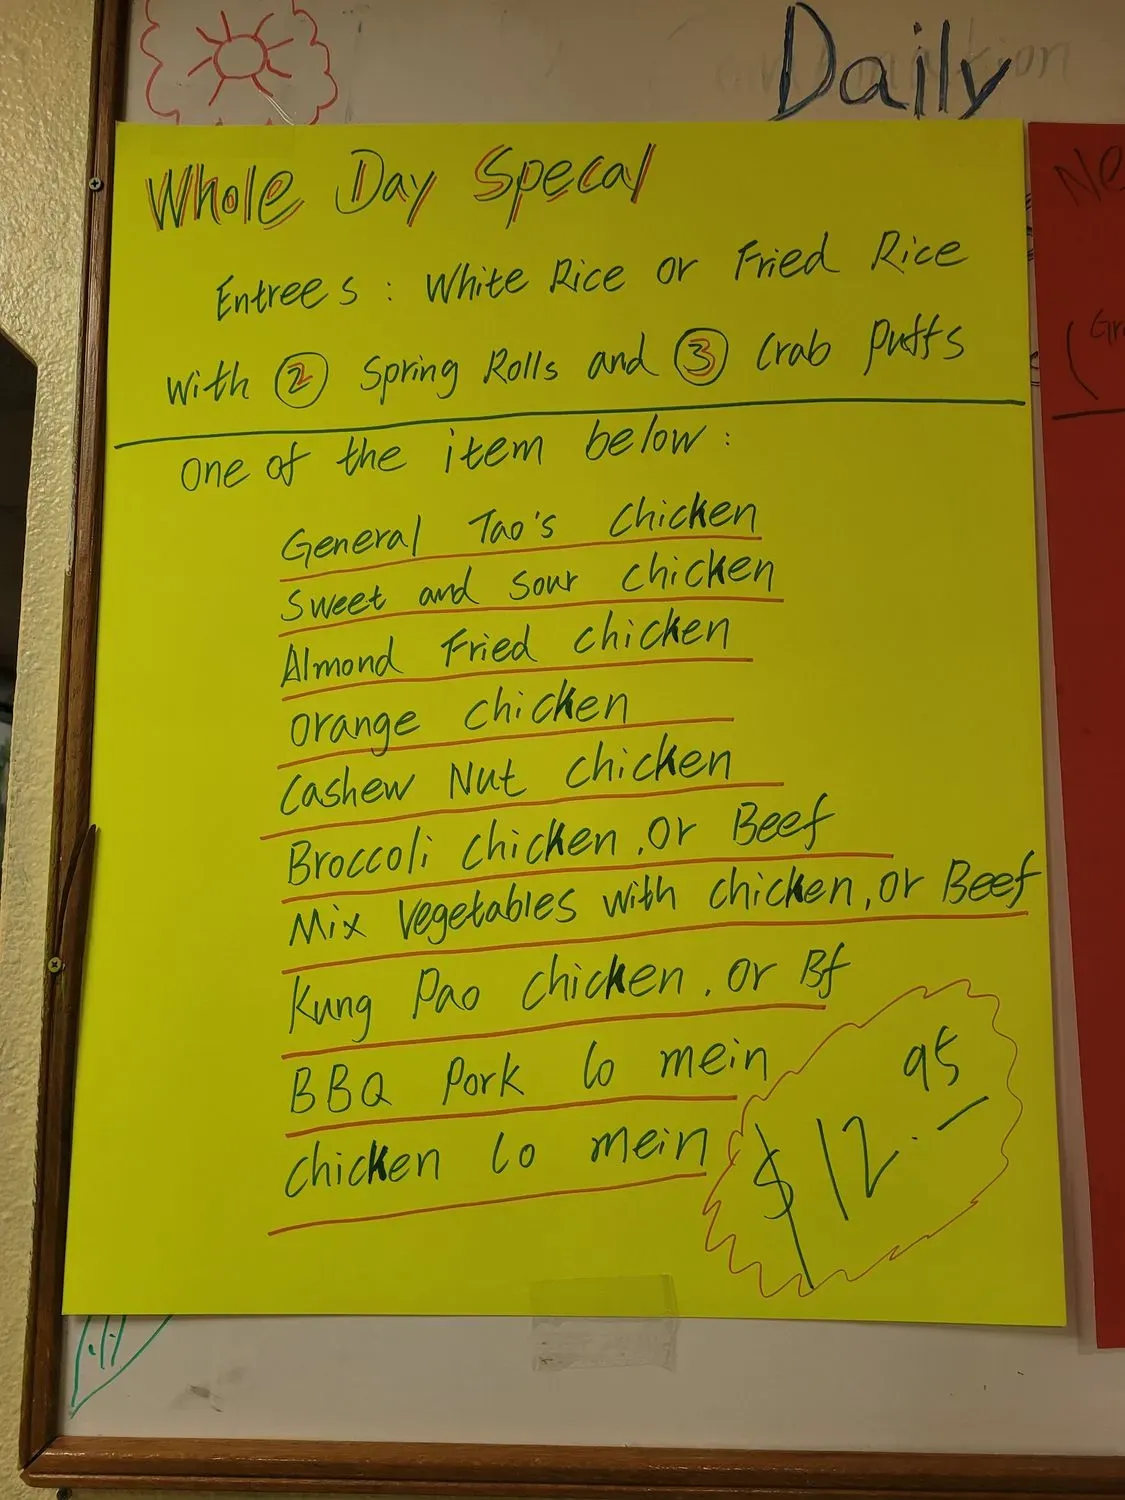 Daily
Whole Day Specal
Entrees : White Rice or Fried Rice
with 2 Spring Rolls and 3 Crab Puffs
One of the item below :
General Tao's Chicken
Sweet and Sour Chicken
Almond Fried Chicken
Orange Chicken
Cashew Nut Chicken
Broccoli Chicken, Or Beef
Mix Vegetables with Chicken, or Beef
Kung Pao Chicken, or Bf
BBQ Pork lo mein
Chicken lo mein
$12.95